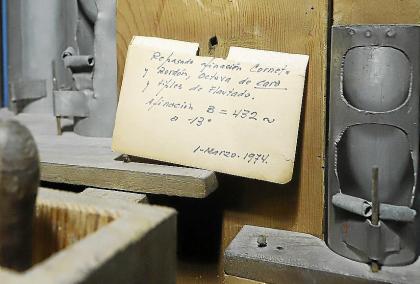 Repasado afinación Corneta
y Bordón, Octava de cara
y tiples de Flautado.
Afinación B = 432 ~
a -13°
1-Marzo-1974.